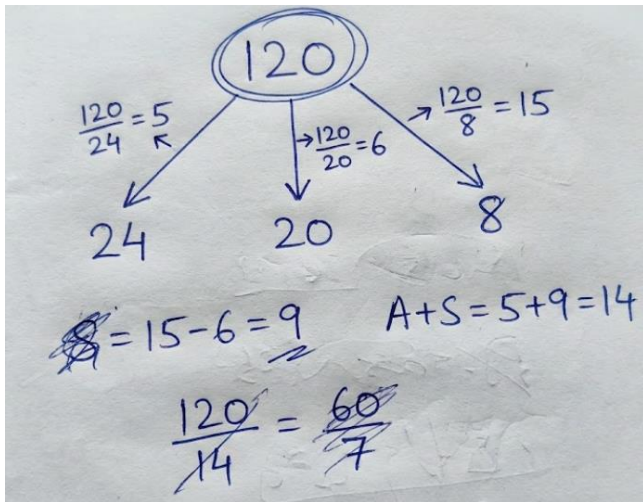 120
120/24 = 5
120/20 = 6
120/8 = 15
24 20 8
= 15 - 6 = 9 A + S = 5 + 9 = 14
120/14 = 60/7